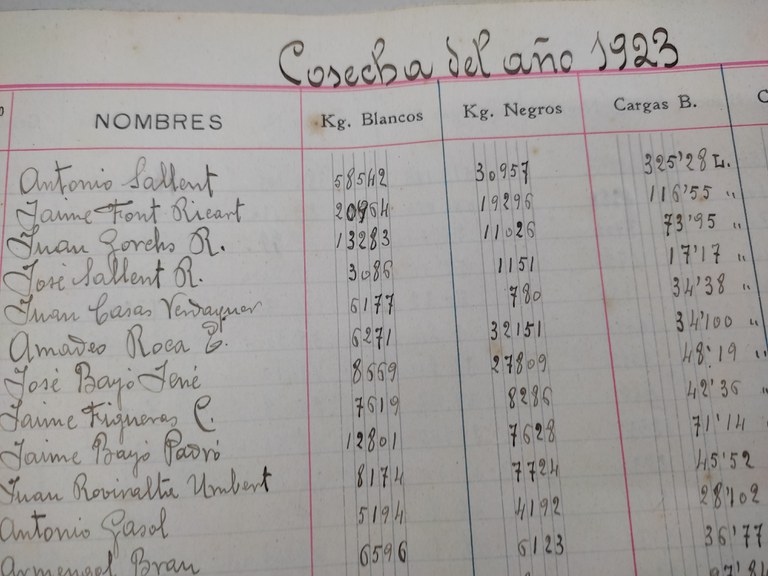 Cosecha del año 1923
NOMBRES Kg. Blancos Kg. Negros Cargas B.
Antonio Sallent 58542 30957 325'28 L.
Jaime Font Ricart 20964 19296 116'55 "
Juan Gorchs R. 13283 11026 73'95 "
José Sallent R. 3086 1151 17'17 "
Juan Casas Verdaguer 6177 780 34'38 "
Amadeo Roca 6271 32151 34'100 "
José Bayó Jené 8669 27809 48'19 "
Jaime Figueras C. 7619 8286 42'36 "
Jaime Bayó Padró 12801 7628 71'14 "
Juan Rovinalta Umbert 8174 7724 45'52
Antonio Gasol 5194 4192 28'102
Armengol Brau 6596 6123 36'77